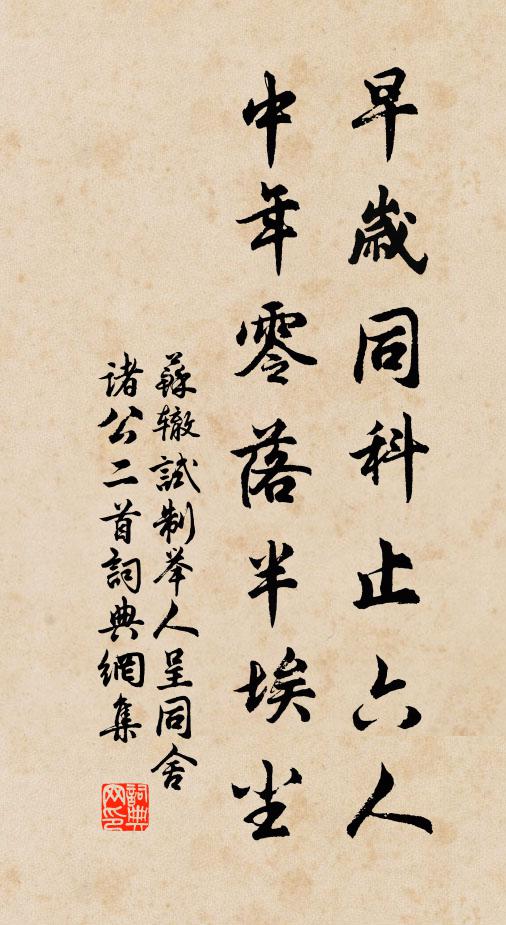 早歲同科止六人
中年零落半埃尘
蘇辙試制举人呈同舍
諸公二首詞典網集
詞典网印